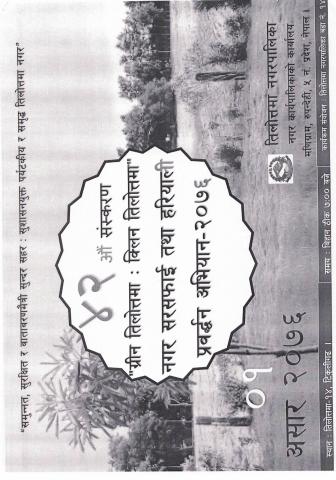 "समुन्नत, सुरक्षित र वातावरणमैत्री सुन्दर सहर : सुशासनयुक्त पर्यटकीय र समृद्ध तिलोत्तमा नगर"
४२ औं संस्करण
"ग्रीन तिलोत्तमा : क्लिन तिलोत्तमा"
नगर सरसफाई तथा हरियाली
प्रवर्द्धन अभियान-२०७६
०१
असार २०७६
तिलोत्तमा नगरपालिका
नगर कार्यपालिकाको कार्यालय
मणिग्राम, रुपन्देही, ५ नं. प्रदेश, नेपाल ।
स्थान : तिलोत्तमा-१४, टिकुलीगढ ।
समय : बिहान ठीक ७:०० बजे
कार्यक्रम संयोजन : तिलोत्तमा नगरपालिका वडा नं. १४